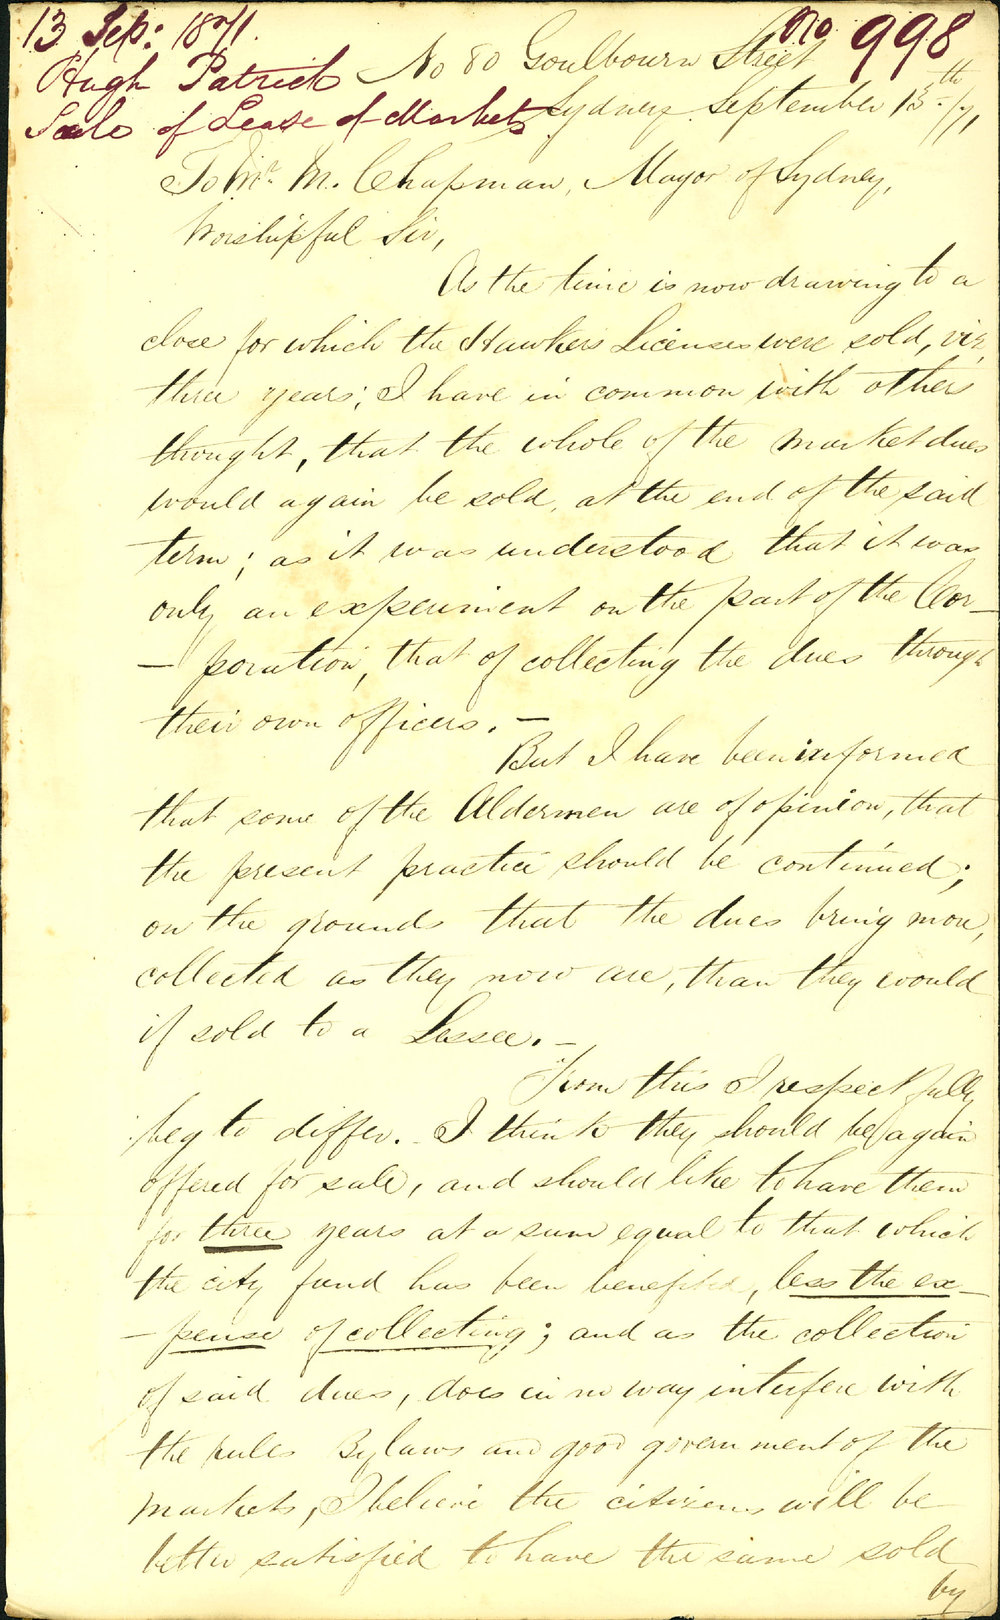 13 Sep: 1871.
No 998
Hugh Patrick
Sale of Lease of Markets
No 80 Goulbourn Street
Sydney September 13th /71,
To Mr. M. Chapman, Mayor of Sydney,
Worshipful Sir,
As the time is now drawing to a
close for which the Hawkers Licenses were sold, viz,
three years; I have in common with others
thought, that the whole of the market dues
would again be sold, at the end of the said
term; as it was understood that it was
only an experiment on the part of the Cor-
- poration, that of collecting the dues through
their own officers. -
But I have been informed
that some of the Aldermen are of opinion, that
the present practice should be continued;
on the grounds that the dues bring more,
collected as they now are, than they would
if sold to a Lessee. -
From this I respectfully
beg to differ. I think they should be again
offered for sale, and should like to have them
for three years at a sum equal to that which
the city fund has been benefited, less the ex-
- pense of collecting; and as the collection
of said dues, does in no way interfere with
the rules Bylaws and good government of the
markets, I believe the citizens will be
better satisfied to have the same sold
by